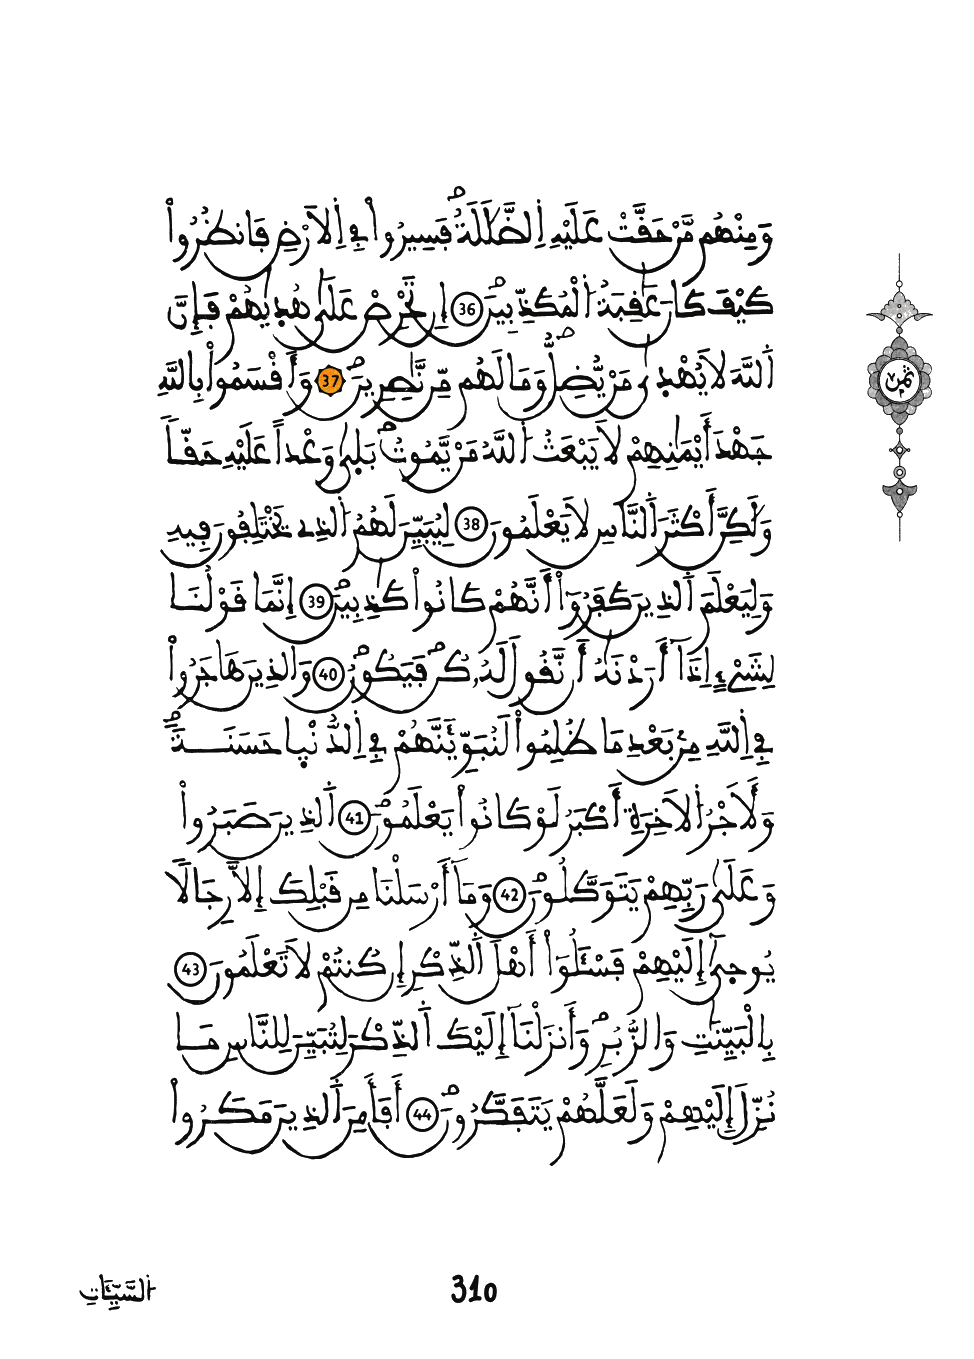 وَمِنْهُم مَّنْ حَقَّتْ عَلَيْهِ اِ۬لضَّلَٰلَةُ فَسِيرُواْ فِے اِ۬لَارْضِ فَانظُرُواْ
كَيْفَ كَانَ عَٰقِبَةُ اُ۬لْمُكَذِّبِينَۖ 36 إِن تَحْرِصْ عَلَىٰ هُد۪يٰهُمْ فَإِنَّ
اَ۬للَّهَ لَا يُهْد۪ىٰ مَنْ يُّضِلُّۖ وَمَا لَهُم مِّن نَّٰصِرِينَۖ 37 وَأَقْسَمُواْ بِاللَّهِ
جَهْدَ أَيْمَٰنِهِمْ لَا يَبْعَثُ اُ۬للَّهُ مَنْ يَّمُوتُۖ بَل۪ىٰ وَعْداً عَلَيْهِ حَقّاٗ
وَلَٰكِنَّ أَكْثَرَ اَ۬لنَّاسِ لَا يَعْلَمُونَ 38 لِيُبَيِّنَ لَهُمُ اُ۬لذِے يَخْتَلِفُونَ فِيهِ
وَلِيَعْلَمَ اَ۬لذِينَ كَفَرُوٓاْ أَنَّهُمْ كَانُواْ كَٰذِبِينَۖ 39 إِنَّمَا قَوْلُنَا
لِشَےْءٍ إِذَآ أَرَدْنَٰهُ أَن نَّقُولَ لَهُۥ كُنۖ فَيَكُونُۖ 40 وَالذِينَ هَاجَرُواْ
فِے اِ۬للَّهِ مِنۢ بَعْدِ مَا ظُلِمُواْ لَنُبَوِّئَنَّهُمْ فِے اِ۬لدُّنْي۪ا حَسَنَةٗۖ
وَلَأَجْرُ اُ۬لَاخِرَةِ أَكْبَرُ لَوْ كَانُواْ يَعْلَمُونَۖ 41 اَ۬لذِينَ صَبَرُواْ
وَعَلَىٰ رَبِّهِمْ يَتَوَكَّلُونَۖ 42 وَمَآ أَرْسَلْنَا مِن قَبْلِكَ إِلَّا رِجَالاٗ
يُوح۪ىٰٓ إِلَيْهِمْ فَسْـَٔلُوٓاْ أَهْلَ اَ۬لذِّكْرِ إِن كُنتُمْ لَا تَعْلَمُونَ 43
بِالْبَيِّنَٰتِ وَالزُّبُرِۖ وَأَنزَلْنَآ إِلَيْكَ اَ۬لذِّكْرَ لِتُبَيِّنَ لِلنَّاسِ مَا
نُزِّلَ إِلَيْهِمْ وَلَعَلَّهُمْ يَتَفَكَّرُونَۖ 44 أَفَأَمِنَ اَ۬لذِينَ مَكَرُواْ
ثمن
السَّيِّـَٔاتِ
310